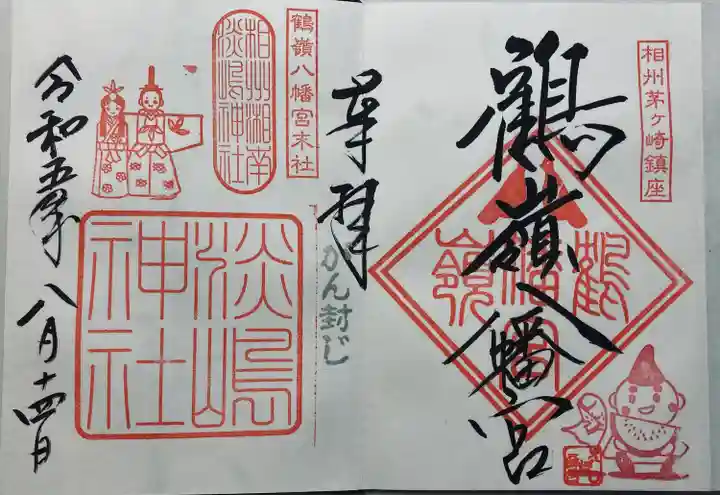 相州茅ヶ崎鎮座
鶴嶺八幡宮
鶴嶺
八幡宮
奉拝
がん封じ
鶴嶺八幡宮末社
相州湘南
淡嶋神社
淡嶋
神社
令和五年八月十四日